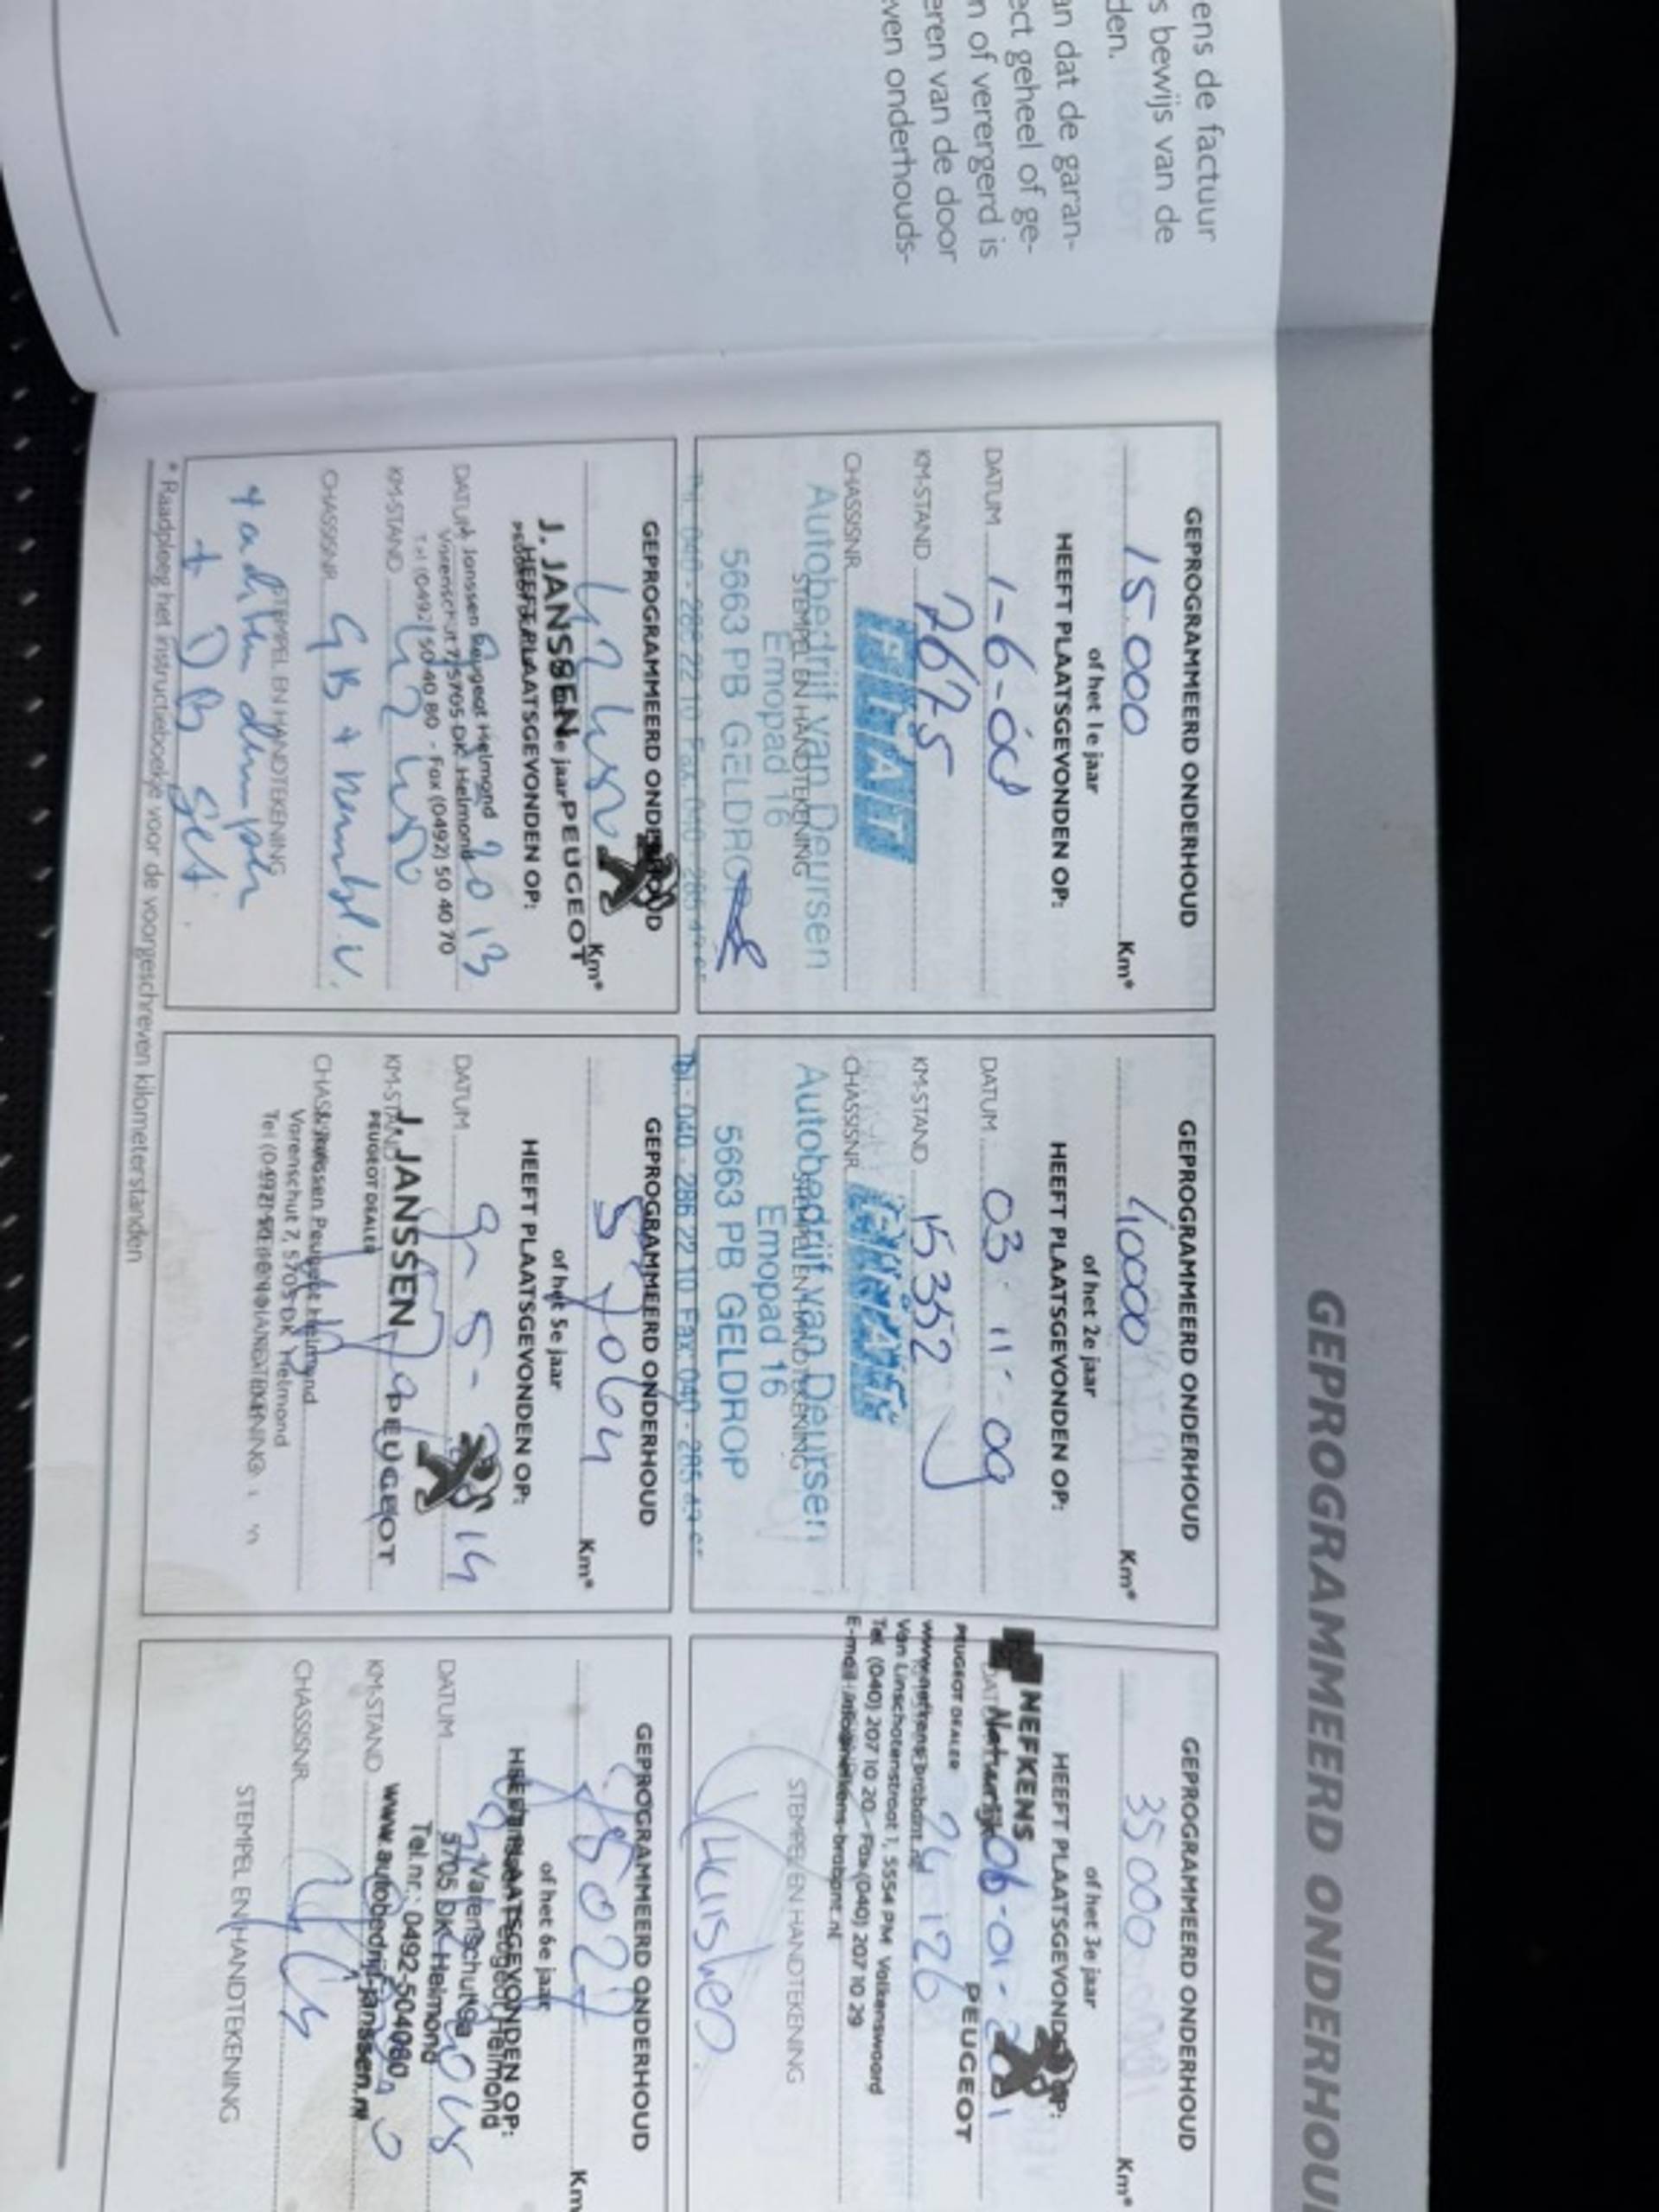 ens de factuur
s bewijs van de
den.
an dat de garan-
ect geheel of ge-
n of verergerd is
eren van de door
ven onderhouds-
GEPROGRAMMEERD ONDERHOU
GEPROGRAMMEERD ONDERHOUD
15.000 Km*
of het 1e jaar
HEEFT PLAATSGEVONDEN OP:
DATUM 1-6-08
KM-STAND 7675
CHASSISNR.
STEMPEL EN HANDTEKENING
Autobedrijf van Deursen
Emopad 16
5663 PB GELDROP
Tel. 040 - 286 22 10 Fax. 040 - 285
GEPROGRAMMEERD ONDERHOUD
40000 Km*
of het 2e jaar
HEEFT PLAATSGEVONDEN OP:
DATUM 03-11-09
KM-STAND 15352
CHASSISNR.
STEMPEL EN HANDTEKENING
Autobedrijf van Deursen
Emopad 16
5663 PB GELDROP
Tel. 040 - 286 22 10 Fax. 040 - 285
GEPROGRAMMEERD ONDERHOUD
35000 Km*
of het 3e jaar
HEEFT PLAATSGEVONDEN OP:
NEFKENS
Natuurlijk
DATUM 06-01-2011
PEUGEOT DEALER PEUGEOT
24126
www.nefkens-brabant.nl
Van Linschotenstraat 1, 5554 PM Valkenswaard
Tel. (040) 207 10 20 - Fax (040) 207 10 29
E-mail info@nefkens-brabant.nl
STEMPEL EN HANDTEKENING
GEPROGRAMMEERD ONDERHOUD
Km*
e jaar
J. JANSSEN PEUGEOT
HEEFT PLAATSGEVONDEN OP:
DATUM 2013
Janssen Peugeot Helmond
Varenschut 7, 5705 DK Helmond
Tel (0492) 50 40 80 - Fax (0492) 50 40 70
KM-STAND
CHASSISNR. GB +
STEMPEL EN HANDTEKENING
GEPROGRAMMEERD ONDERHOUD
57064 Km*
of het 5e jaar
HEEFT PLAATSGEVONDEN OP:
DATUM 9-5-2014
KM-STAND
J. JANSSEN PEUGEOT
PEUGEOT DEALER
CHASSISNR.
Janssen Peugeot Helmond
Varenschut 7, 5705 DK Helmond
GEPROGRAMMEERD ONDERHOUD
Km
of het 6e jaar
HEEFT PLAATSGEVONDEN OP:
Helmond
Varenschut 9a
DATUM
5705 DK Helmond
Tel.nr.: 0492-504080
KM-STAND
www.autobedrijf-janssen.nl
CHASSISNR.
STEMPEL EN HANDTEKENING
* Raadpleeg het instructieboekje voor de voorgeschreven kilometerstanden